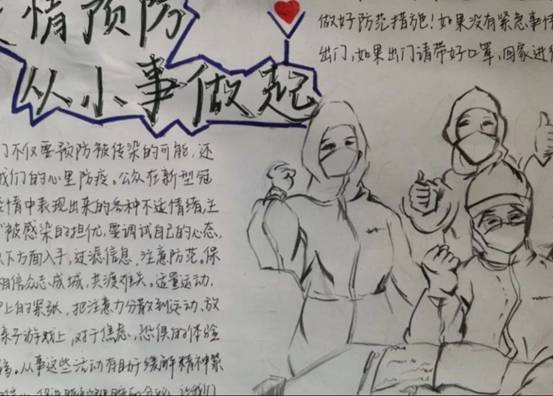 情预防
从小事做起
做好防范措施！如果没有紧急事情
出门，如果出门请带好口罩，回家进行
门不仅要预防被传染的可能，还
我们的心里防疫。公众在新型冠
疫情中表现出来的各种不适情绪，主
被感染的担忧。要调试自己的心态，
以下方面入手，过滤信息，注意防范，保
相信众志成城，共渡难关。适量运动，
上的紧张，把注意力分散到运动，放
亲子游戏上，对于焦虑，恐惧的体验
从事这些活动有助于缓解精神紧